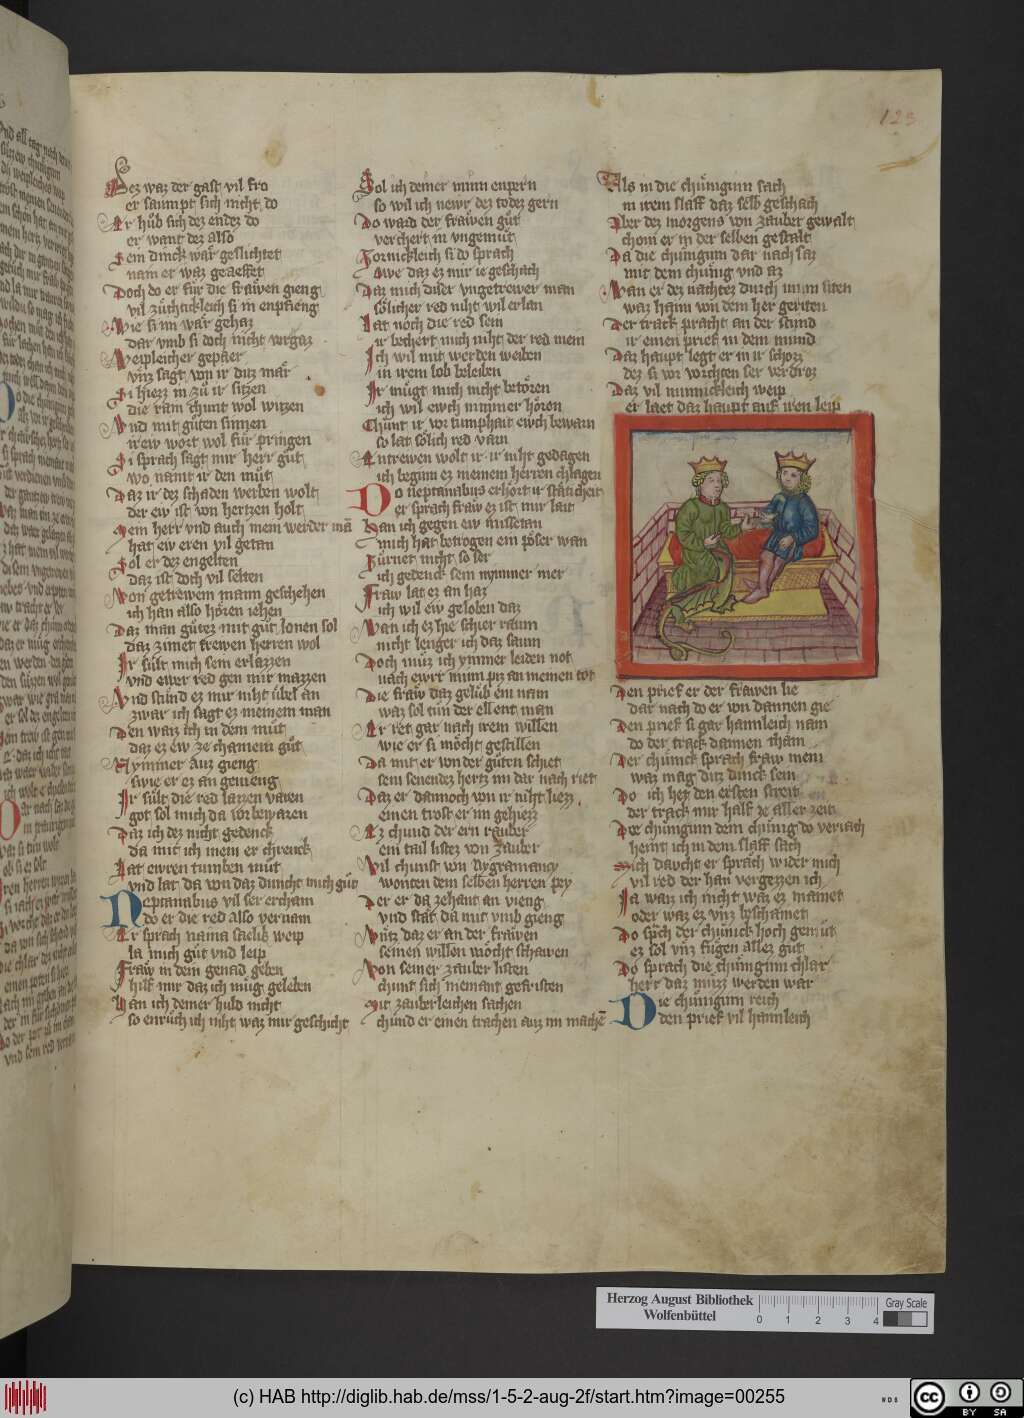 123
Dez waz der gast vil fro
er saumpt sich nicht do
Er hůb sich dez endez do
er want dez also
Sein dinck wår geslichtet
nam er waz geaeffet
Doch do er fůr die frawen gieng
vil zůchticleich si in enpfieng
Wie si im wår gehaz
dar vmb si doch nicht vergaz
Weipleicher gepåer
vnz sagt von ir ditz mår
Si hiezz in zů ir sitzen
die ram chunt wol witzen
Vnd mit gůten sinnen
irew wort wol fůr pringen
Si sprach sagt mir herr gůt
wo namt ir den můt
Daz ir dez schaden werben wolt
der ew ist von hertzen holt
Mein herr vnd auch mein werder mā
hat ew eren vil getan
Sol er dez engelten
daz ist doch vil selten
Von getrewem mann geschehen
ich han also hŏren iehen
Daz man gůtez mit gůt lonen sol
daz zimet frewen herren wol
Ir sůlt mich sein erlazzen
vnd ewer red gen mir mazzen
Vnd stůnd ez mir niht ůbel an
zwar ich sagt ez meinem man
Den waiz ich in dem můt
daz ez ew ze chainem gůt
Nymmer auz gieng
swie er ez an gevieng
Ir sůlt die red lazzen varen
got sol mich da vor bewaren
Daz ich dez nicht gedenck
da mit ich mein er chrenck
Lat ewren tumben můt
vnd lat da von daz duncht mich gůt
Neptanabus vil ser ercham
do er die red also vernam
Er sprach nama saelig weip
la mich gůt vnd leip
Fraw in dein genad geben
hilf mir daz ich můg geleben
Han ich deiner huld nicht
so enrůch ich niht waz mir geschicht
Sol ich deiner minn enpern
so wil ich newr dez todez gern
Do ward der frawen gůt
verchert in vngemůt
Zornickleich si do sprach
Owe daz ez mir ie geschach
Daz mich diser vngetrewer man
sŏlicher red niht wil erlan
Lat noch die red sein
ir bechert mich niht der red mein
Ich wil mit werden weiben
in irem lob beleiben
Ir můgt mich nicht betŏren
ich wil ewch nimmer hŏren
Chůnt ir vor tumphait ewch bewarn
so lat sŏlich red varn
Entrewen wolt ir ir niht gedagen
ich beginn ez meinem herren chlagen
Do neptanabus erhort ir ståticheit
er sprach fraw ez ist mir lait
Han ich gegen ew missetan
mich hat betrogen ein pŏser wan
Zůrnet nicht so ser
ich gedenck sein nymmer mer
Fraw lat ez an haz
ich wil ew geloben daz
Wan ich ez hie schier raum
nicht lenger ich daz saum
Doch můz ich ymmer leiden not
nach ewr minn piz an meinen tot
Die fraw daz gelůb ein nam
waz sol tůn der ellent man
Er ret gar nach irem willen
wie er si mŏcht gestillen
Da mit er von der gůten schiet
sein senendez hertz im dar nach riet
Daz er dannoch von ir niht liez
einen trost er im gehiezz
Ez chund der ern rauber
ein tail listez von zauber
Vil chunst von Nygramancy
wonten dem selben herren pey
Der er da zehant an vieng
vnd stat da mit vmb gieng
Vntz daz er an der frawen
seinen willen mŏcht schawen
Von seiner zauber listen
chunt sich niemant gefristen
Mit zauberleichen sachen
chund er einen trachen auz im machē
Als in die chůniginn sach
in irem slaff daz selb geschach
Aber dez morgens von zauber gewalt
chom er in der selben gestalt
Da die chůnigin dar nach saz
mit dem chůnig vnd az
Wan er dez nachtez durch minn siten
waz haim von dem her geriten
Der track pracht an der stund
ir einen prief in dem mund
Daz haupt legt er in ir schoz
dez si vor vorchten ser verdroz
Daz vil minnickleich weip
er laet daz haupt auf iren leip
Den prief er der frawen lie
dar nach do er von dannen gie
Den prief si gar haimleich nam
do der track dannen cham
Der chůnick sprach fraw mein
waz mag ditz dinck sein
Do ich het den ersten streit
der track mir half ze aller zeit
Die chůniginn dem chůnig do veriach
heint ich in dem slaff sach
Mich daucht er sprach wider mich
vil red der han vergezzen ich
Ja waiz ich nicht waz ez mainet
oder waz ez vnz beschainet
Do sprach der chůnick hoch gemůt
ez sol vnz fůgen allez gůt
Do sprach die chůniginn chlar
herr daz můzz werden war
Die chůnigunn reich
den prief vil haimleich
Herzog August Bibliothek
Wolfenbüttel
0 1 2 3 4
Gray Scale
(c) HAB http://diglib.hab.de/mss/1-5-2-aug-2f/start.htm?image=00255
cc BY SA